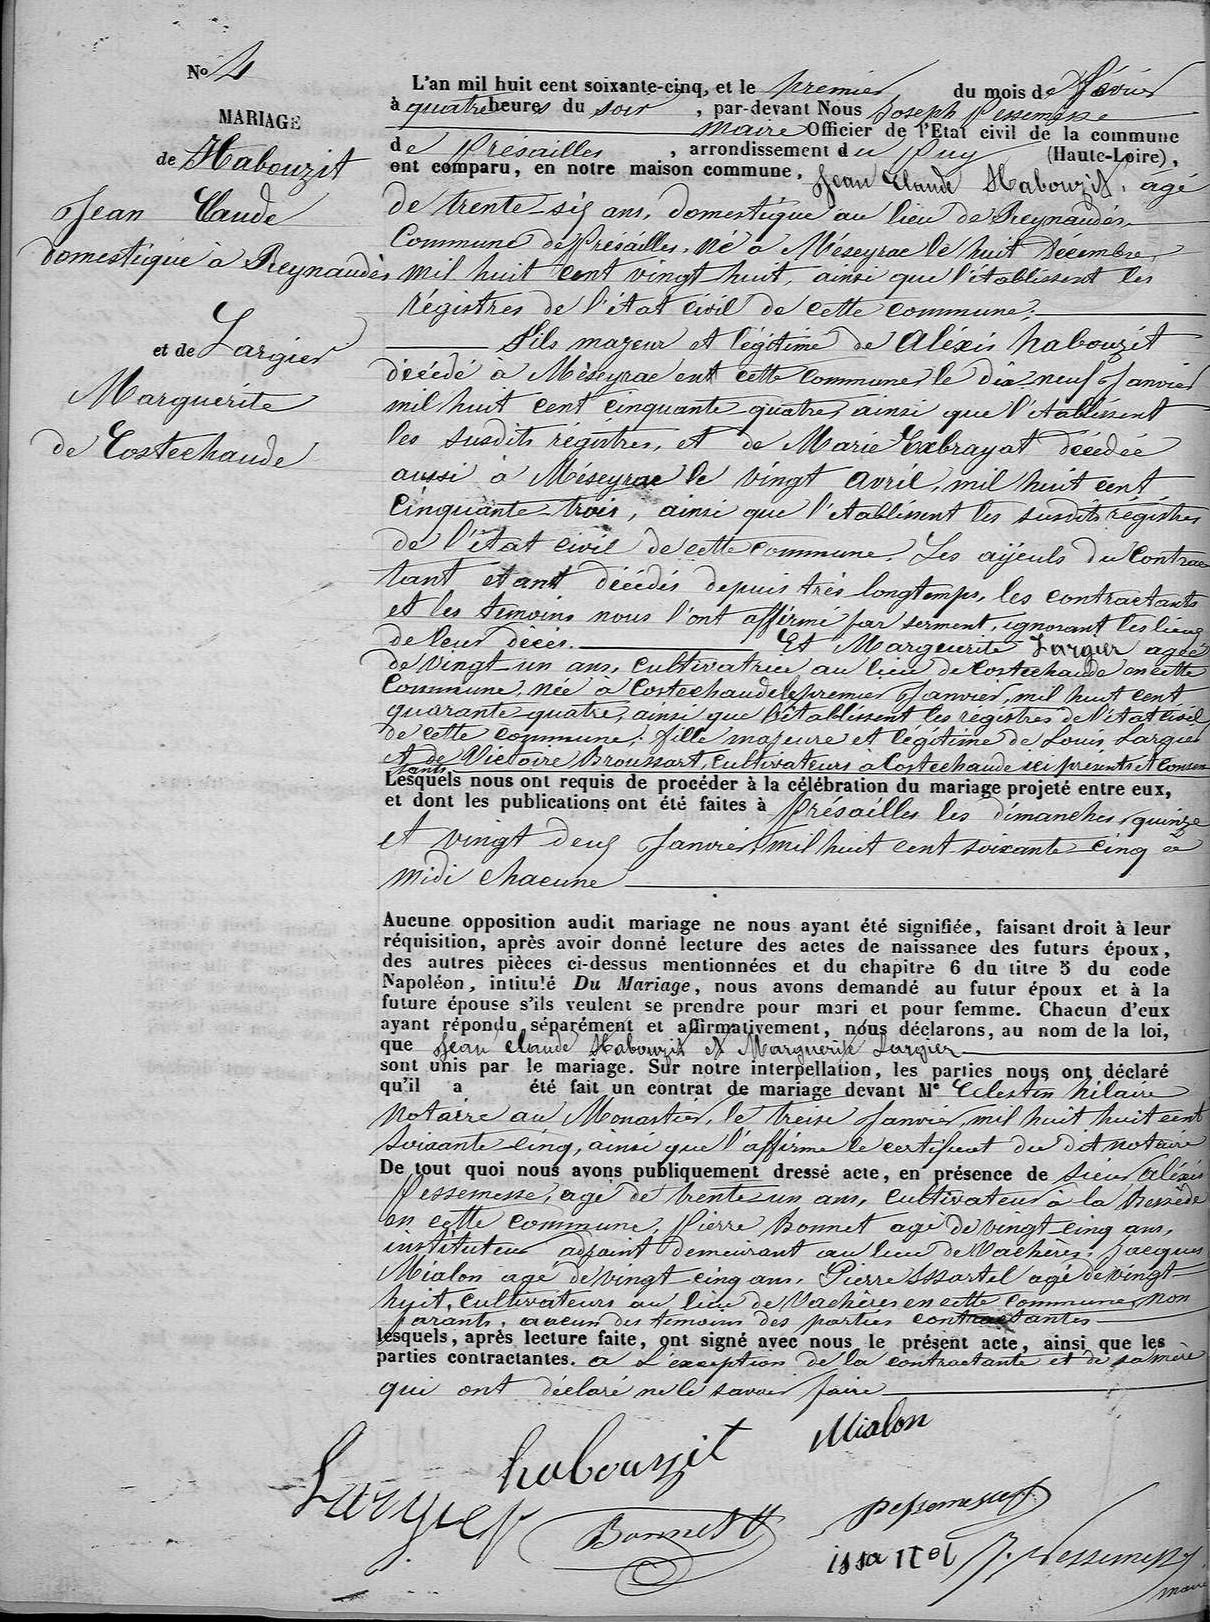 No 4
MARIAGE
de Habouzit
Jean Claude
domestique à Reynaudès
et de Largier
Marguerite
de Costechaude
L'an mil huit cent soixante-cinq, et le premier du mois de Févrie
à quatre heures du soir, par-devant Nous Joseph Pessemesse
maire Officier de l'Etat civil de la commune
de Présailles, arrondissement du Puy (Haute-Loire),
ont comparu, en notre maison commune, Jean Claude Habouzit, agé
de trente-six ans, domestique au lieu de Reynaudès
Commune de Présailles, né à Méseyrac le huit Decembre
mil huit cent vingt-huit, ainsi que l'établissent les
régistres de l'état civil de cette commune;
Fils majeur et légitime de Aléxis habouzit
décédé à Méseyrac ent cette commune le dix-neuf Janvier
mil huit cent cinquante quatre, ainsi que l'etablissent
les susdits régistres, et de Marie Exbrayat décédée
aussi à Méseyrac le vingt Avril, mil huit cent
cinquante-trois, ainsi que l'etablissent les susdits régistres
de l'état civil de cette commune. Les aïjeuls du Contrac
tant etant décédés depuis très longtemps, les contractants
et les témoins nous l'ont affirmé par serment, ignorant les lieux
de leur décès. Et Marguerite Largier agée
de vingt-un ans, cultivatrice au lieu de Costechaude en cette
Commune, née à Costechaude le premier Janvier, mil huit cent
quarante-quatre, ainsi que l'établissent les régistres de l'état civil
de cette commune; fille majeure et légitime de Louis Largier
et de Victoire Broussart, cultivateurs a Costechaude ici présents et consen
tants
Lesquels nous ont requis de procéder à la célébration du mariage projeté entre eux,
et dont les publications ont été faites à Présailles les dimanches quinze
et vingt deux Janvier, mil huit cent soixante-cinq à
midi chacune
Aucune opposition audit mariage ne nous ayant été signifiée, faisant droit à leur
réquisition, après avoir donné lecture des actes de naissance des futurs époux,
des autres pièces ci-dessus mentionnées et du chapitre 6 du titre 5 du code
Napoléon, intitulé Du Mariage, nous avons demandé au futur époux et à la
future épouse s'ils veulent se prendre pour mari et pour femme. Chacun d'eux
ayant répondu séparément et affirmativement, nous déclarons, au nom de la loi,
que Jean Claude Habouzit et Marguerite Largier
sont unis par le mariage. Sur notre interpellation, les parties nous ont déclaré
qu'il a été fait un contrat de mariage devant Me Celestin hilaire
notaire au Monastier, le treise Janvier, mil huit huit cent
soixante-cinq, ainsi que l'affirme le certificat du dit notaire
De tout quoi nous avons publiquement dressé acte, en présence de sieur Aléxis
Pessemesse, agé de trente-un ans, cultivateur à la
en cette commune, Pierre Bonnet agé de vingt-cinq ans,
instituteur adjoint demeurant au lieu de Vachères; Jacques
Mialon agé de vingt-cinq ans, Pierre Issartel agé de vingt-
huit, cultivateurs au lieu de Vachères en cette commune, non
parants, aucun des témoins des parties contractantes
lesquels, après lecture faite, ont signé avec nous le présent acte, ainsi que les
parties contractantes. a L'exception de la contractante et de sa mère
qui ont déclaré ne le savoir faire
Mialon
habouzit
Largier
Bonnet
pessemesse
issartel
J. Pessemesse
maire